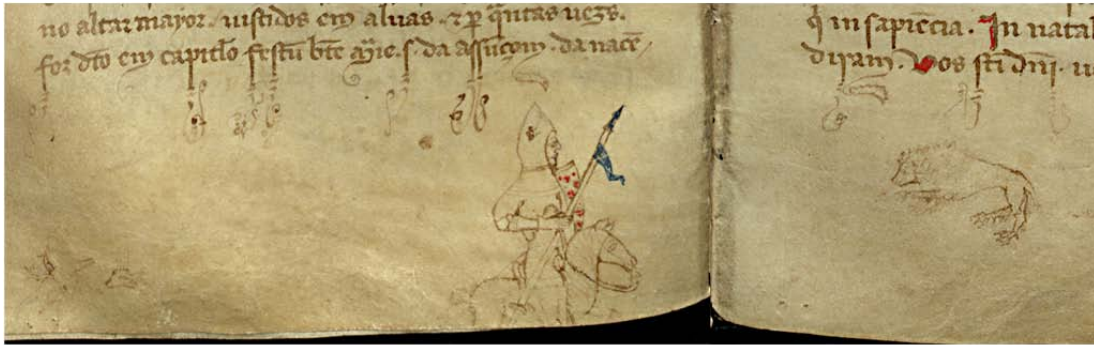 no altar mayor. uistidos em aluas. ⁊ ꝑ q̃ntas uegs.
for dto em capitlo festũ bte mͥe. s. da assũcom. da nacẽ
q̃ in sapiẽcia. In natal
diram. Uos sti dñi. u